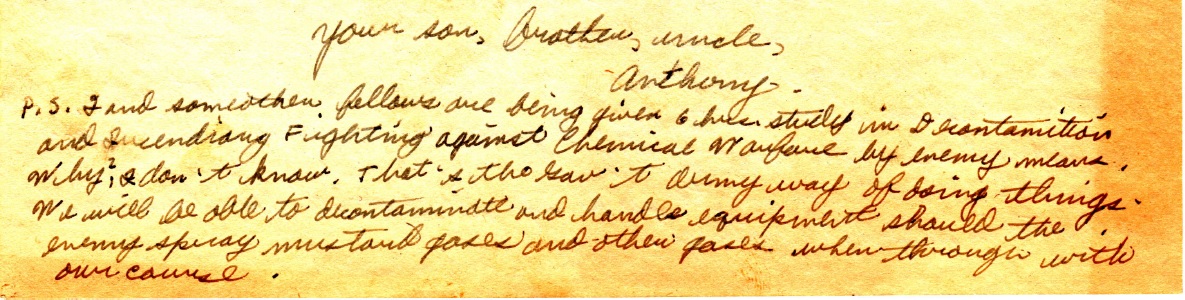 your son, Brother, uncle,
Anthony.
P.S. I and someother fellows are being given 6 hrs. study in Decontamition
and Incendiary Fighting against Chemical Warfare by enemy means.
Why?, I don't know. That's the Gov't Army way of doing things.
We will be able to decontaminate and handle equipment should the
enemy spray mustard gases and other gases when through with
our course.